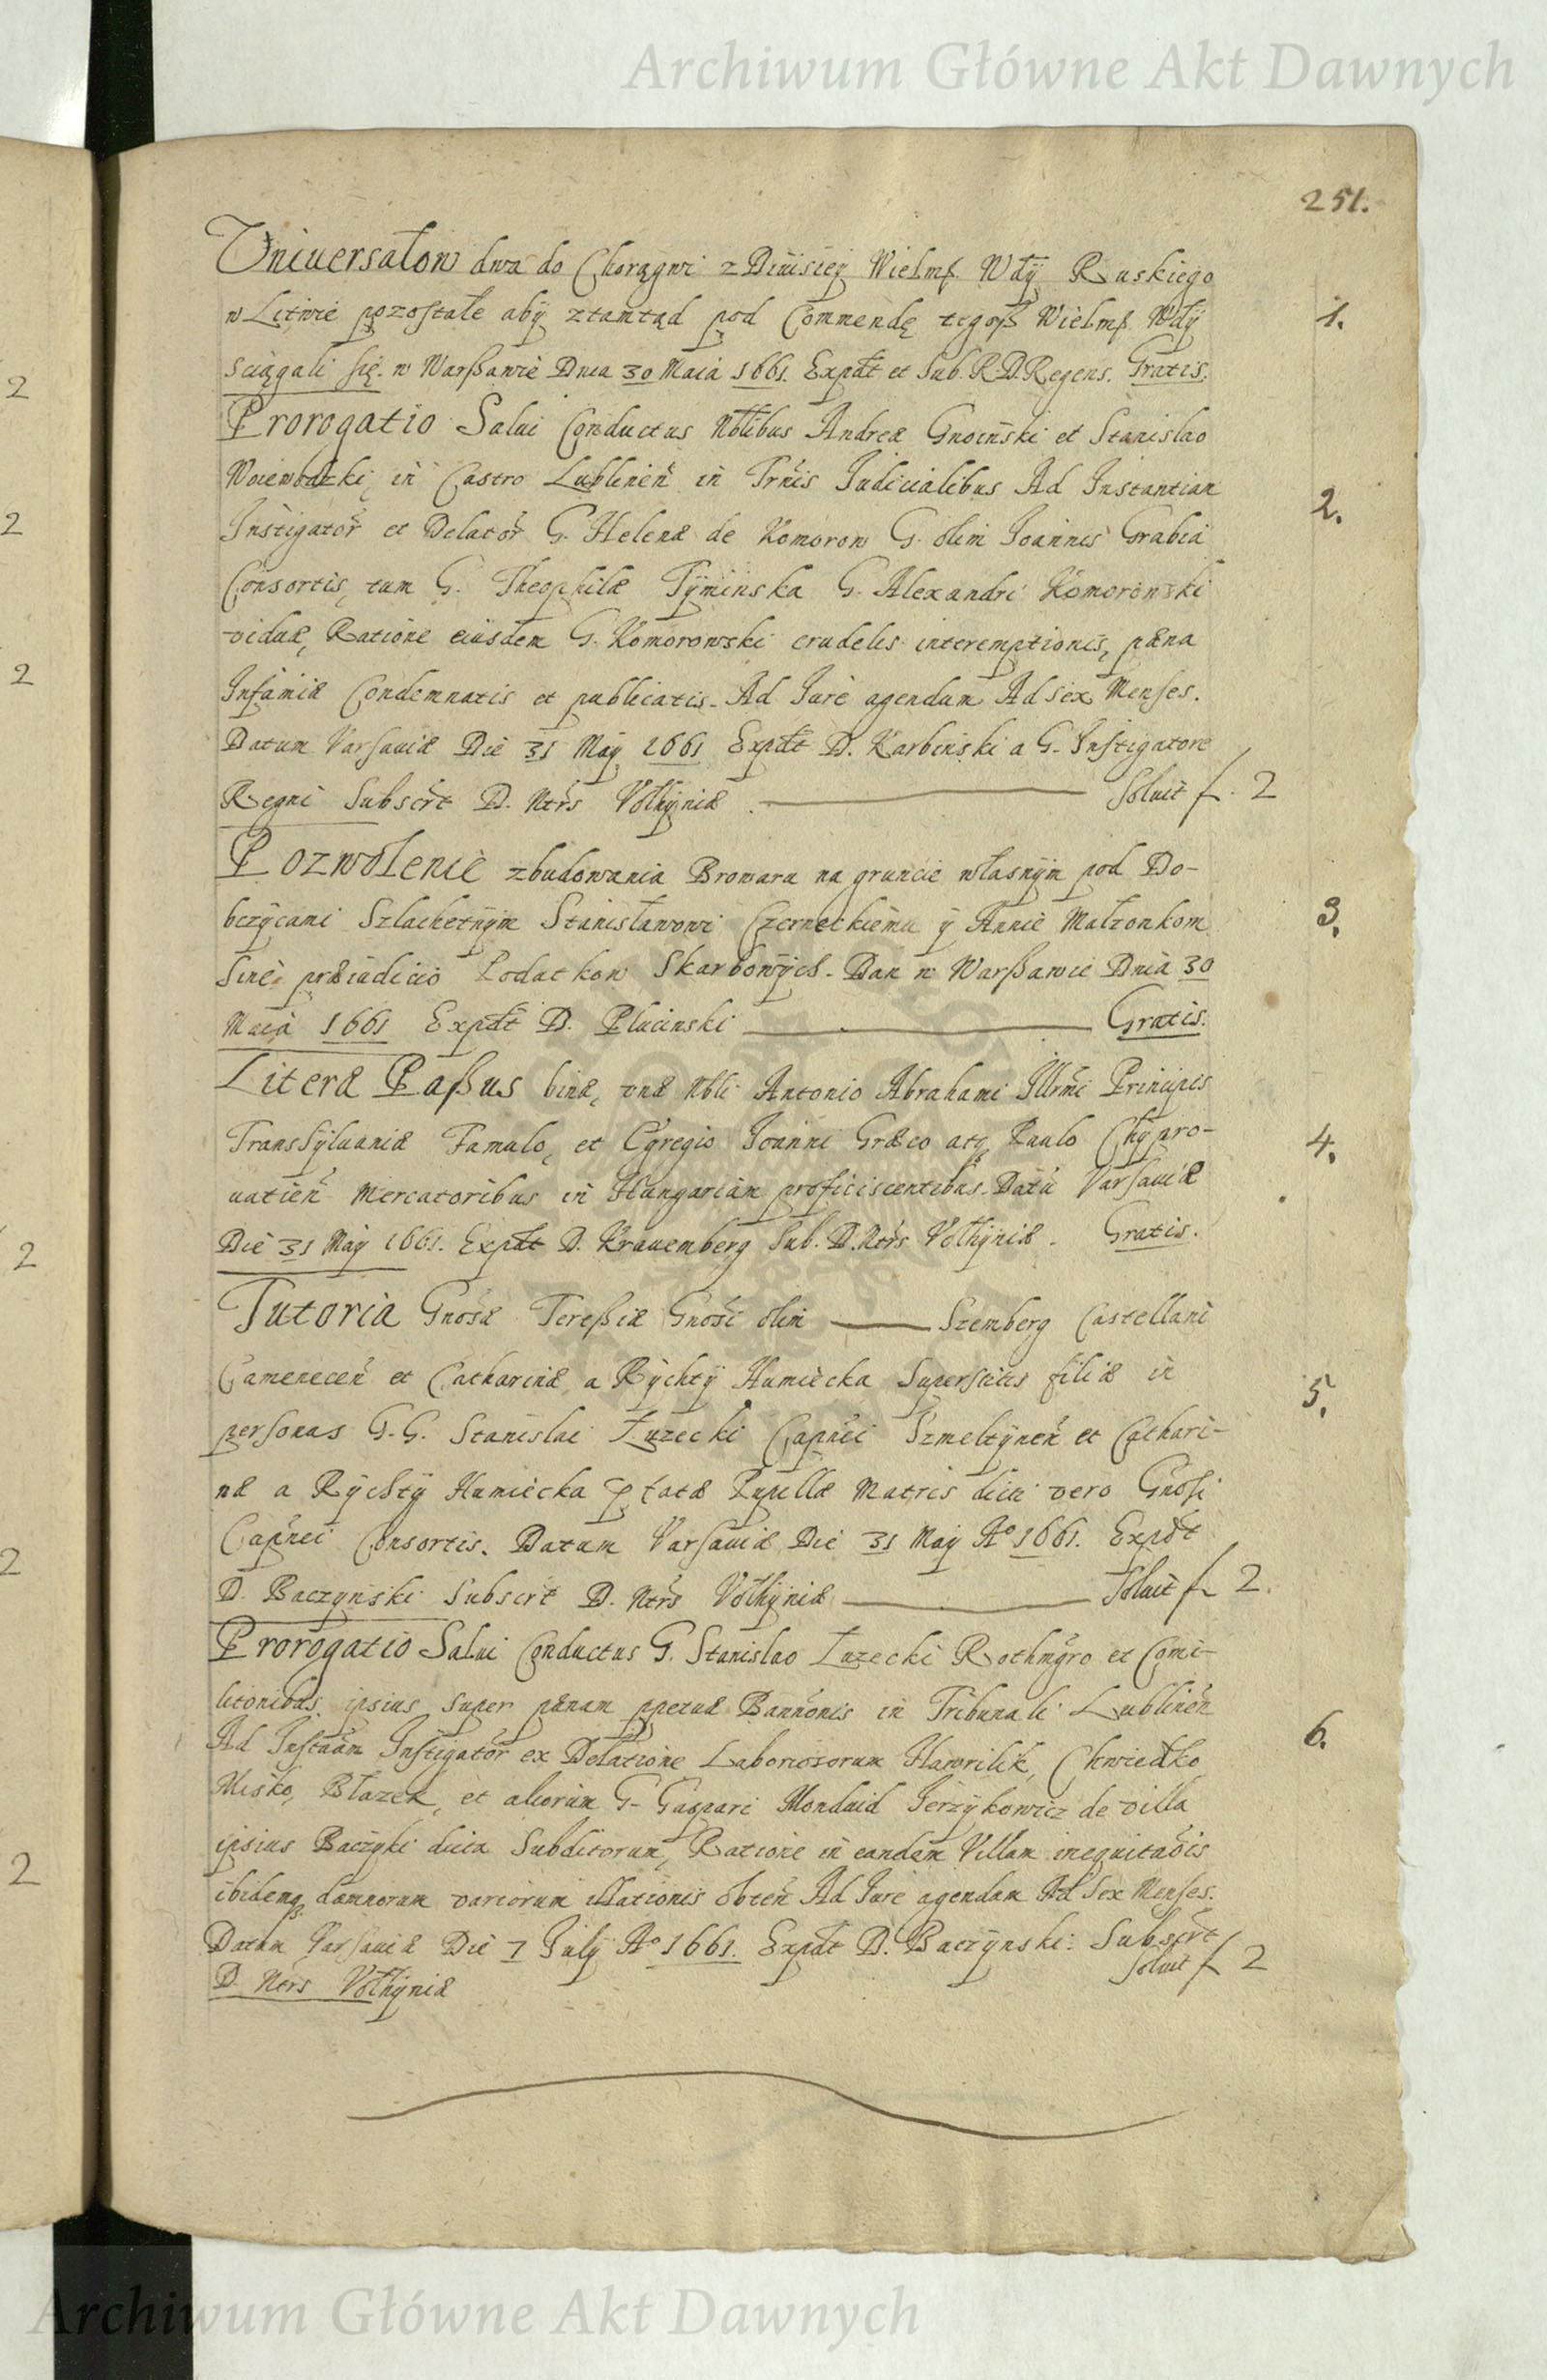 Archiwum Główne Akt Dawnych
251.
Vniuersałow dwa do Chorągwi z Diuisiey Wielmż. Wdy Ruskiego
w Litwie pozostałe aby ztamtąd pod Commendę tegoß Wielmż. Wdy
1.
sciągali się. w Warßawie Dnia 30 Maia 1661. Expdt et Sub. R.D. Regens. Gratis.
Prorogatio Salui Conductus Nblibus Andreæ Gnoinski et Stanislao
Woiewodzki, in Castro Lublinen in Trnis Iudicialibus Ad Instantiam
2.
Instigator et Delator G. Helenæ de Komorow G. olim Ioannis Grabia
Consortis, tum G. Theophilæ Tyminska G. Alexandri Komorowski
viduæ, Ratione eiusdem G. Komorowski crudelis interemptionis, pæna
Infamiæ Condemnatis et publicatis. Ad Iure agendum Ad sex Menses.
Datum Varsauiæ Die 31 May 1661 Expdt D. Karbinski a G. Instigatore
Regni Subscrt D. Ntrs Volhyniæ. Soluit f. 2
Pozwolenie zbudowania Browaru na gruncie własnym pod Do-
bczycami Szlachetnym Stanisławowi Czerneckiemu y Annie Małzonkom
3.
Sine præiudicio Podatkow Skarbowych. Dan w Warßawie Dnia 30
Maia 1661 Expdt D. Plucinski Gratis.
Literæ Paßus binæ, vnæ Nbli Antonio Abrahami Illrmi Principis
Transsyluaniæ Famulo, et Egregio Ioanni Græco atq Paulo Chypro-
4.
uatien Mercatoribus in Hungariam proficiscentibus. Datu Varsauiæ
Die 31 May 1661. Expdt D. Krauemberg Sub. D. Ntrs Volhyniæ. Gratis.
Tutoria Gnosæ Tereßiæ Gnosi olim Szemberg Castellani
Camenecen et Catharinæ a Rychty Humiecka Superstitis filiæ in
5.
personas G.G. Stanislai Łuzecki Capnei Szmeltynen et Cathari-
næ a Rychty Humiecka p fatæ Pupillæ Matris dicti vero Gnosi
Capnei Consortis. Datum Varsauiæ Die 31 May Aº 1661. Expdt
D. Baczynski Subscrt D. Ntrs Volhyniæ Soluit f 2.
Prorogatio Salui Conductus G. Stanislao Łuzecki Rothmgro et Comi-
litonibus ipsius super pænam ppetuæ Bannonis in Tribunali Lublinen
6.
Ad Instaam Instigator ex Delatione Laboriosorum Hawrilik, Chwiedko
Misko, Błazek, et aliorum G. Gaspari Monduid Ierzykowicz de villa
ipsius Baczyki dicta Subditorum, Ratione in eandem Villam inequitaois
ibidemq damnorum variorum illationis obten Ad Iure agendum Ad Sex Menses.
Datum Varsauiæ Die 7 July Aº 1661. Expdt D. Baczynski: Subscrt
D. Ntrs Volhyniæ Soluit f 2
2
2
2
2
2
2
Archiwum Główne Akt Dawnych